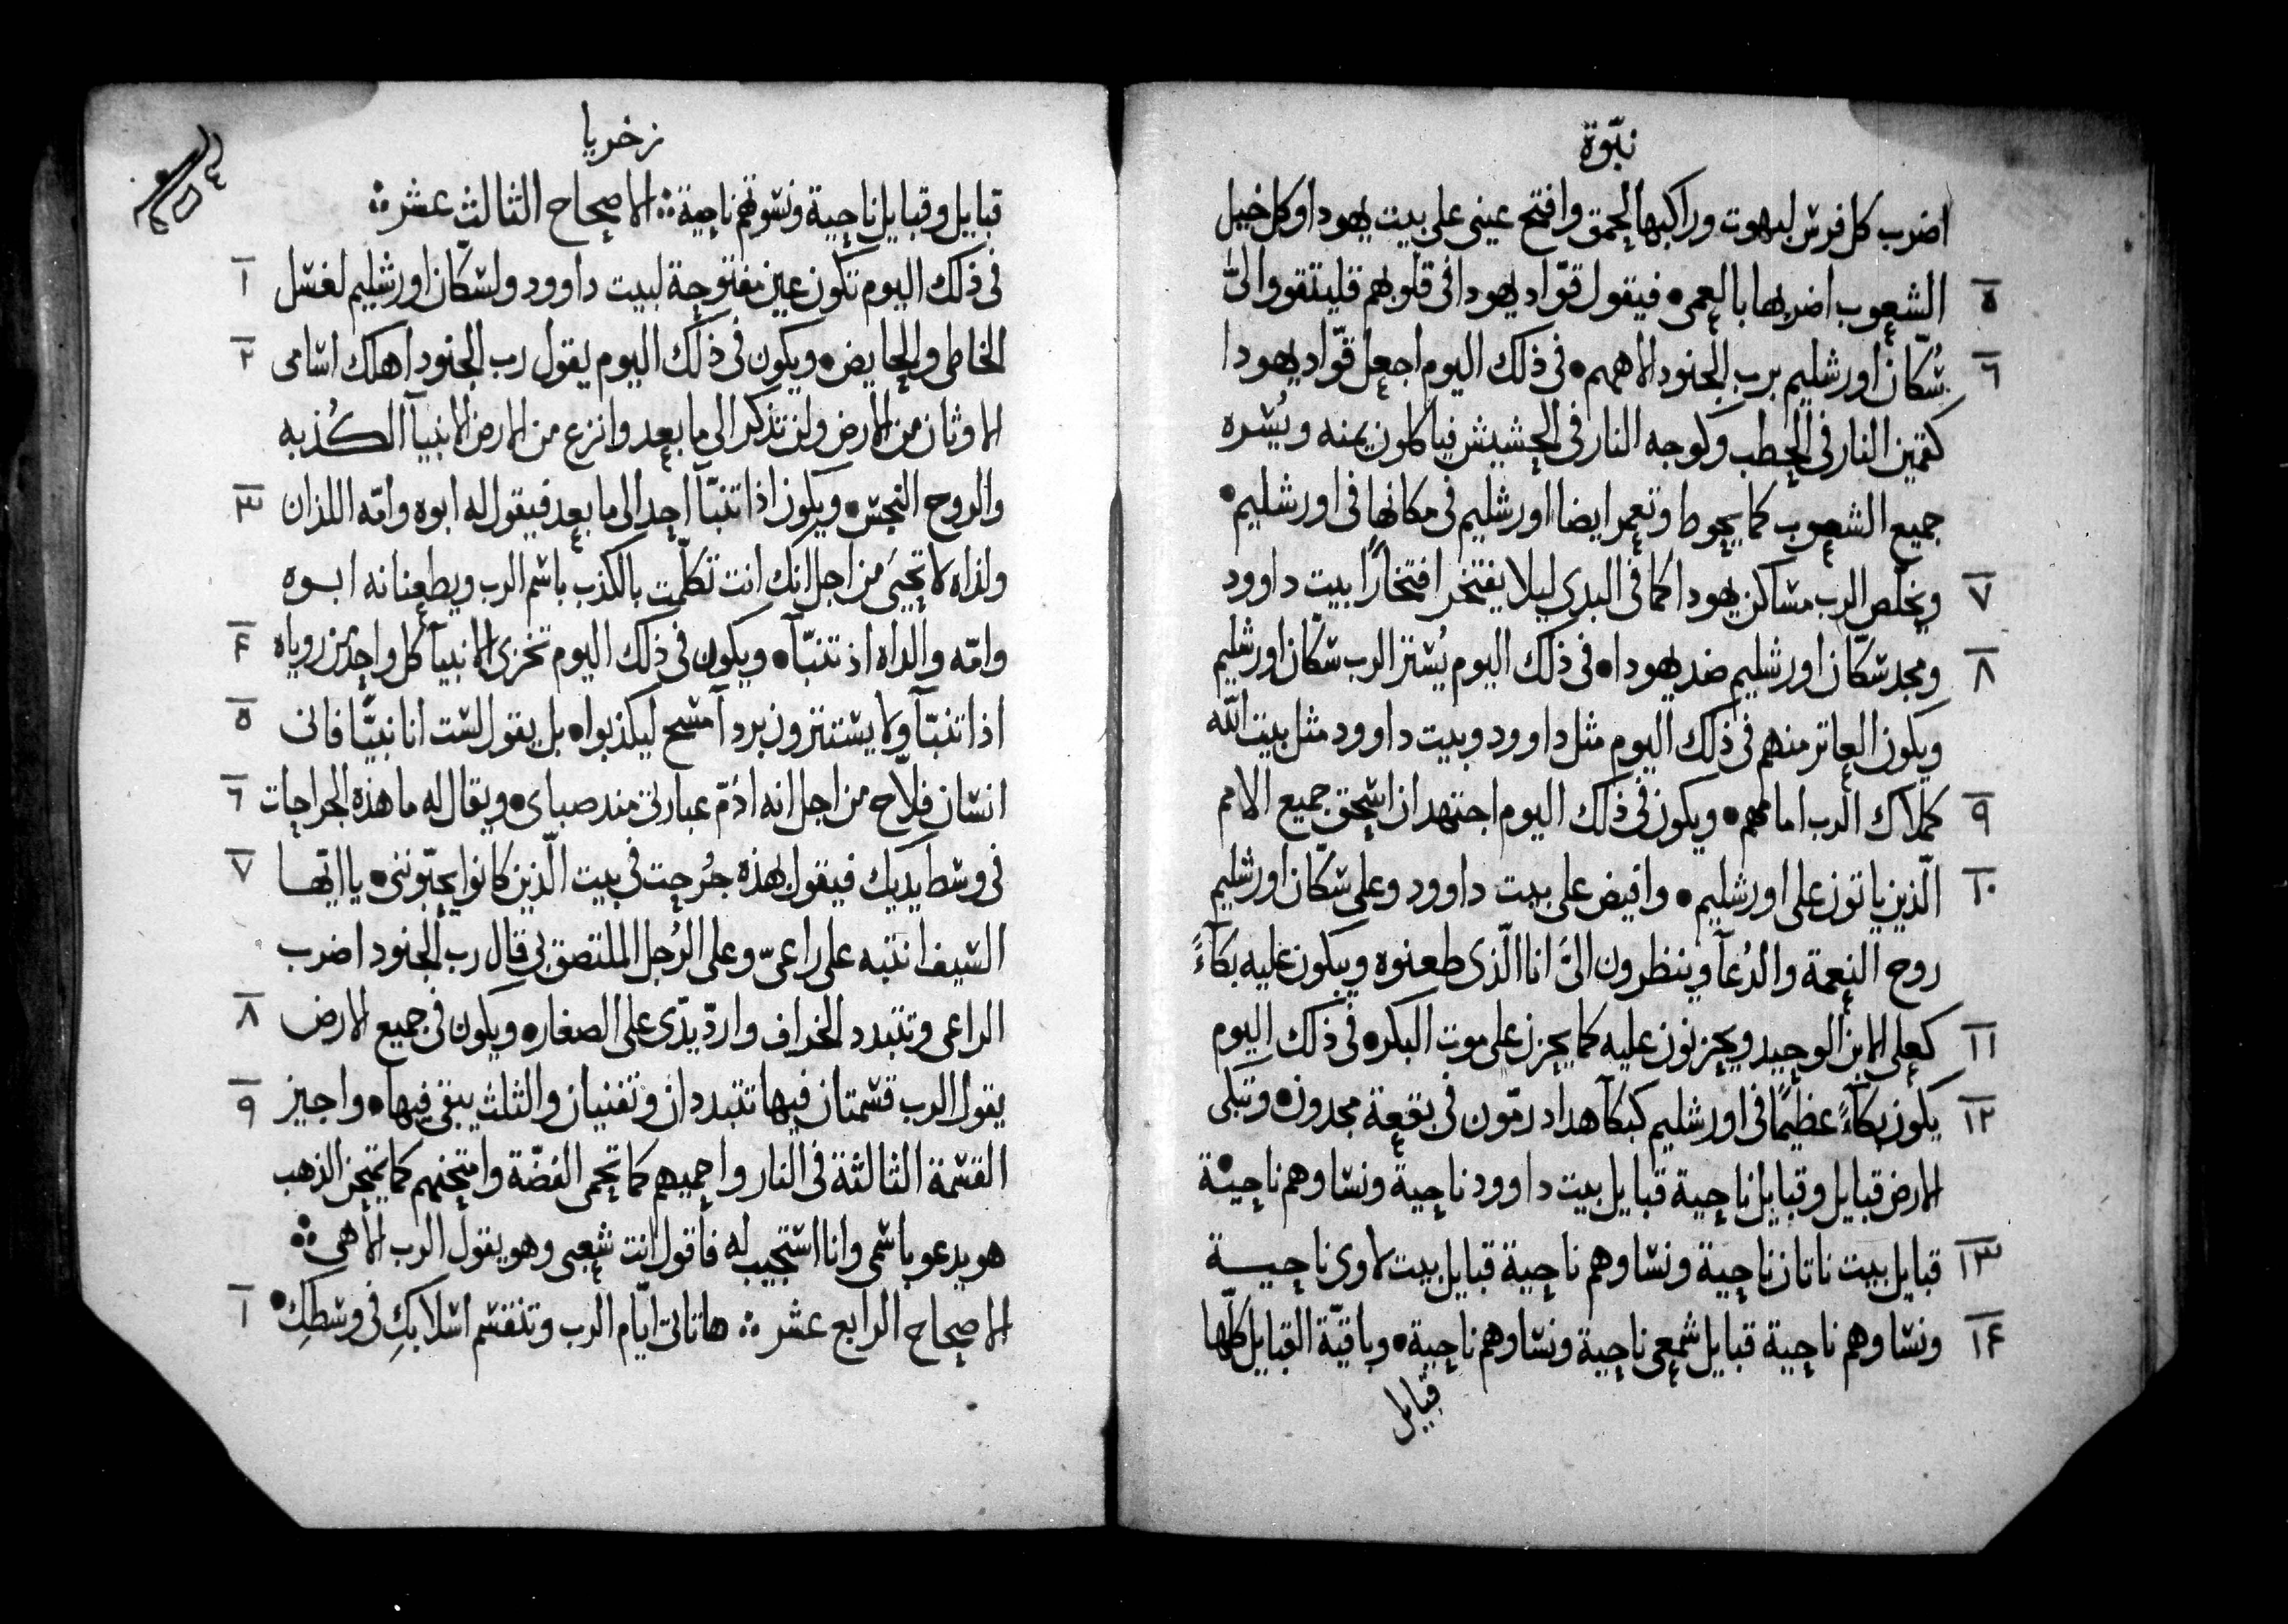 نبّوة
اضرب كل فرس ليبهوت وراكبها لحمق وافتح عينى على بيت يهودا وكل خيل
٥ الشعوب اضربها بالعمى٠ فيقول قوّاد يهودا فى قلوبهم فليتقووا الىّ
٦ سُكّان اورشليم برب الجنود الاههم٠ فى ذلك اليوم اجعل قوّاد يهودا
كقمين النار فى الحطب وكوجه النار فى الحشيش فياكلون يمنه ويُسره
جميع الشعوب كما يحوط وتعمر ايضا اورشليم فى مكانها فى اورشليم٠
٧ ويخلّص الرب مساكن يهودا كما فى البدى ليلا يفتخر افتخارًا بيت داوود
٨ ومجد سكّان اورشليم ضد يهودا٠ فى ذلك اليوم يُستر الرب سكّان اورشليم
ويكون العاتر منهم فى ذلك اليوم مثل داوود وبيت داوود مثل بيت الله
٩ كملاك الرب امامهم٠ ويكون فى ذلك اليوم اجتهد ان اسحق جميع الامم
١٠ الّذين ياتون على اورشليم٠ وافيض على بيت داوود وعلى سكّان اورشليم
روح النعمة والدُعآ وينظرون الىَّ انا الّذى طعنوه ويبكون عليه بكآءً
١١ كعلى الابن الوحيد ويحزنون عليه كما يحزن على موت البكر٠ فى ذلك اليوم
١٢ يكون بكآءً عظيمًا فى اورشليم كبكآ هداد رمّون فى بقعة مجدون٠ وتبكى
الارض قبايل وقبايل ناحية قبايل بيت داوود ناحية ونساوهم ناحية
١٣ قبايل بيت ناتان ناحية ونساوهم ناحية قبايل بيت لاوى ناحيــة
١٤ ونساوهم ناحية قبايل شمعى ناحية ونساوهم ناحية٠ وباقيّة القبايل كلّها
قبايل
زخريا
قبايل وقبايل ناحية ونسوتهم ناحية الاصحاح الثالث عشر
١ فى ذلك اليوم تكون عين مفتوحة لبيت داوود ولسكّان اورشليم لغسل
٢ الخاطى والحايض٠ ويكون فى ذلك اليوم يقول رب الجنود اهلك اسامى
الاوثان من الارض ولن تذكر الى ما بعد وانزع من الارض الانبيآ الكُذبه
٣ والروح النجس٠ ويكون اذا تنبّآ احد الى ما بعد فيقول له ابوه وامّه اللذان
ولداه لا تحيَى من اجل انك انت تكلّمت بالكذب باسم الرب ويطعنانه ابوه
٤ وامّه والداه اذ تنبّآ٠ ويكون فى ذلك اليوم تخزى الانبيآ كل واحد من روياه
٥ اذا تنبّآ ولا يستترون بردآ مسح ليكذبوا٠ بل يقول لست انا نبيًّا فانى
٦ انسان فلّاح من اجل انه ادُمّ عبارتى منذ صباى٠ ويقال له ما هذه الجراحات
٧ فى وسط يديك فيقول بهذه جُرحت فى بيت الّذين كانوا يحبّوننى٠ يا ايّها
السيف انتبه على راعىّ وعلى الرُجل الملتصق بى قال رب الجنود اضرب
٨ الراعى وتتبدد الخراف واردّ يدّى على الصغار٠ ويكون فى جميع الارض
٩ يقول الرب قسمتان فيها تتبددان وتفنيان والثلث يبقى فيها٠ واجيز
القسمة الثالثة فى النار واحميهم كما تحمى الفضّة وامتحنهم كما يمتحن الذهب
هو يدعو باسمى وانا استجيب له فاقول انت شعبى وهو يقول الرب الاهى
١ الاصحاح الرابع عشر هاتاتى ايّام الرب وتنقسم اسلابكِ فى وسطكِ٠